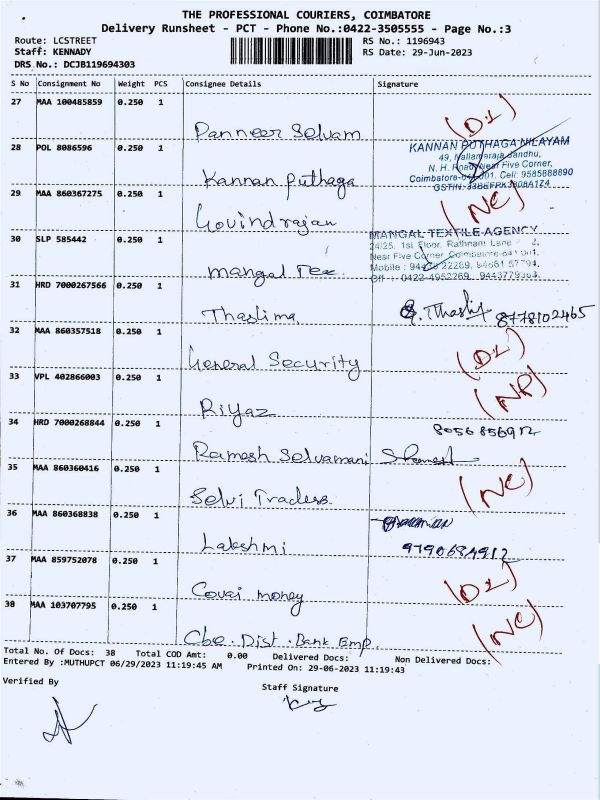 THE PROFESSIONAL COURIERS, COIMBATORE
Delivery Runsheet - PCT - Phone No.:0422-3505555 - Page No.:3
Route: LCSTREET RS No.: 1196943
Staff: KENNADY RS Date: 29-Jun-2023
DRS No.: DCJB119694303
S No Consignment No Weight PCS Consignee Details Signature
27 MAA 100485859 0.250 1
Panneer Selvam (DL)
28 POL 8086596 0.250 1
KANNAN PUTHAGA NILAYAM
49, Nallameraja Sandhu,
N. H. Road, Near Five Corner,
Coimbatore-641 001. Cell: 9585888890
Kannan Puthaga
29 MAA 860367275 0.250 1
Govindrajan (NC)
30 SLP 585442 0.250 1
MANGAL TEXTILE AGENCY
24/25, 1st Floor, Rathnam Lane
Near Five Corner, Coimbatore-641 001.
Mangal Tex
31 HRD 7000267566 0.250 1
Thaslima 8778102465
32 MAA 860357518 0.250 1
General Security (DL)
33 VPL 402866003 0.250 1
Riyaz (NP)
34 HRD 7000268844 0.250 1
8056856912
Ramesh Selvamani
35 MAA 860360416 0.250 1
Selvi Traders (NC)
36 MAA 860368838 0.250 1
Lakshmi 9790684912
37 MAA 859752078 0.250 1
Covai money (DL)
38 MAA 103707795 0.250 1
Cbe. Dist. Bank Emp. (NC)
Total No. Of Docs: 38 Total COD Amt: 0.00 Delivered Docs: Non Delivered Docs:
Entered By :MUTHUPCT 06/29/2023 11:19:45 AM Printed On: 29-06-2023 11:19:43
Verified By
Staff Signature